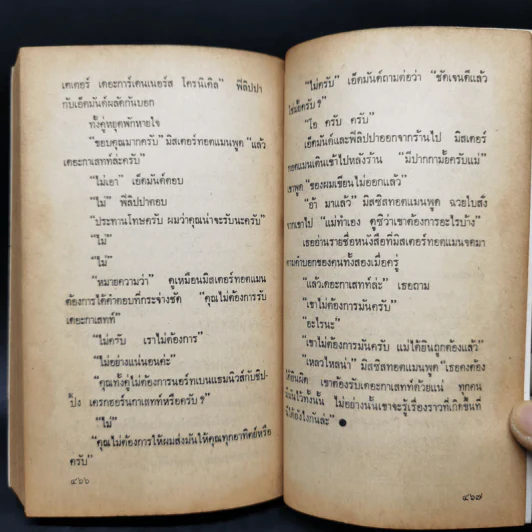 เตเตอร์ เดอะการ์เดนเนอร์ส โครนิเคิล” ฟิลิปปา
กับเอ็ดมันด์ผลัดกันบอก
ทั้งคู่หยุดพักหายใจ
“ขอบคุณมากครับ” มิสเตอร์ทอดแมนพูด “แล้ว
เดอะกาเสทท์ล่ะครับ”
“ไม่เอา” เอ็ดมันด์ตอบ
“ไม่” ฟิลิปปาตอบ
“ประทานโทษครับ ผมว่าคุณน่าจะรับนะครับ”
“ไม่”
“ไม่”
“หมายความว่า” ดูเหมือนมิสเตอร์ทอดแมน
ต้องการได้คำตอบที่กระจ่างชัด “คุณไม่ต้องการรับ
เดอะกาเสทท์”
“ไม่ครับ เราไม่ต้องการ”
“ไม่อย่างแน่นอนค่ะ”
“คุณทั้งคู่ไม่ต้องการนอร์ทเบนแฮมนิวส์กับชิป-
ปิ้ง เคลกฮอร์นกาเสทท์หรือครับ?”
“ไม่”
“คุณไม่ต้องการให้ผมส่งมันให้คุณทุกอาทิตย์หรือ
ครับ”
๔๖๖
“ไม่ครับ” เอ็ดมันด์ถามต่อว่า “ชัดเจนดีแล้ว
ใช่มั้ยครับ?”
“โอ ครับ ครับ”
เอ็ดมันด์และฟิลิปปาออกจากร้านไป มิสเตอร์
ทอดแมนเดินเข้าไปหลังร้าน “มีปากกามั้ยครับแม่”
เขาพูด “ของผมเขียนไม่ออกแล้ว”
“อ้า มาแล้ว” มิสซิสทอดแมนพูด ฉวยใบสั่ง
จากเขาไป “แม่ทำเอง ดูซิว่าเขาต้องการอะไรบ้าง”
เธออ่านรายชื่อหนังสือที่มิสเตอร์ทอดแมนจดมา
ตามคำบอกของคนทั้งสองเมื่อครู่
“แล้วเดอะกาเสทท์ล่ะ” เธอถาม
“เขาไม่ต้องการมันครับ”
“อะไรนะ”
“เขาไม่ต้องการมันครับ แม่ได้ยินถูกต้องแล้ว”
“เหลวไหลน่า” มิสซิสทอดแมนพูด “เธอคงต้อง
ได้ยินผิด เขาต้องรับเดอะกาเสทท์ด้วยแน่ ทุกคน
ไม่อย่างนั้นเขาจะรู้เรื่องราวที่เกิดขึ้นที่
ได้ยังไงกันล่ะ” ●
๔๖๗